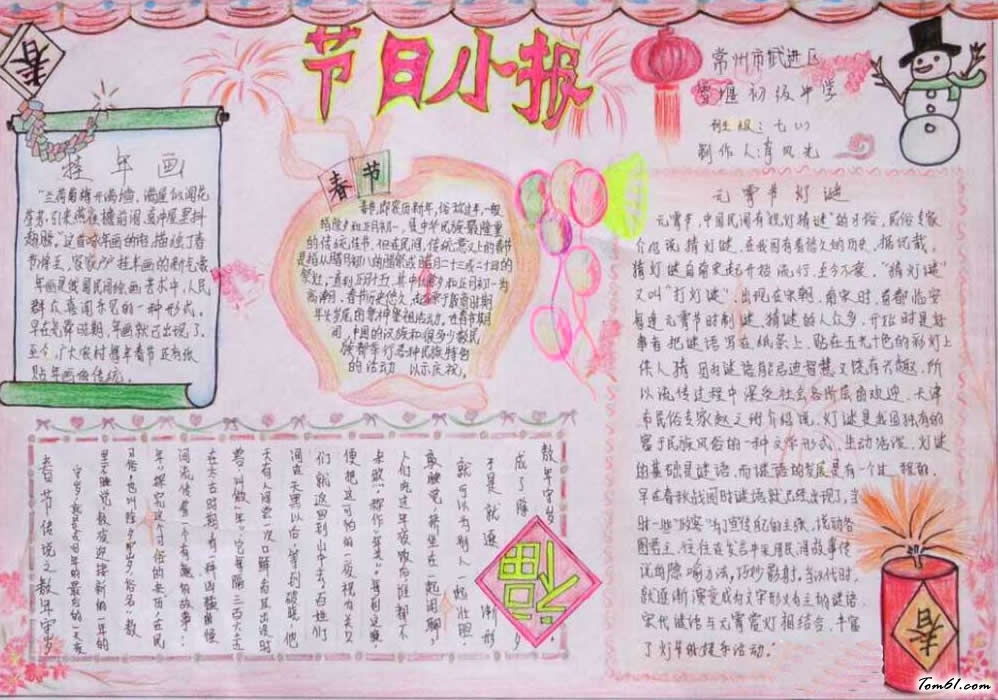 春
节日小报
常州市武进区
雪堰初级中学
班级：七(1)
制作人：
挂年画
"兰荷菊梅开满墙，满屋似闻花
芳芳，引来燕在檐前闹，直冲屋里抖
翅膀。"这首咏年画的诗，描绘了春
节得主，家家户户挂年画的新气象
年画是我国民间绘画艺术中，人民
群众喜闻乐见的一种形式。
早在尧舜时期，年画就已出现了。
至今，广大农村得年春节还有张
贴年画的传统。
春节
春节，即农历新年，俗称过年，一般
指除夕和正月初一，是中华民族最隆重
的传统佳节。但在民间，传统意义上的春节
是指从腊月初八的腊祭或腊月二十三或二十四的
祭灶，一直到正月十五，其中以除夕和正月初一为
高潮。春节历史悠久，起源于殷商时期
年头岁尾的祭神祭祖活动。在春节期
间，中国的汉族和很多少数民
族都举行各种民族特色
的活动 以示庆祝。
元宵节灯谜
元宵节，中国民间有"观灯猜谜"的习俗，民俗专家
介绍说，猜灯谜，在我国有着悠久的历史，据记载，
猜灯谜自南宋起开始流行，至今不衰，"猜灯谜"
又叫"打灯谜"，出现在宋朝，南宋时，首都临安
每逢元宵节时制谜，猜谜的人众多，开始时是好
事者把谜语写在纸条上，贴在五光十色的彩灯上
供人猜，因为谜语能启迪智慧又饶有兴趣，所
以流传过程中深受社会各阶层的欢迎，天津
市民俗专家赵之珩介绍说，灯谜是我国独有的
富于民族风俗的一种文学形式，生动活泼，灯谜
的基础是谜语，而谜语的发展是有一个过程的，
早在春秋战国时谜语就已经出现了，当
时一些"政客"为了宣传自己的主张，说动各
国君主，往往在发言中采用民间故事传
说的隐喻方法，巧妙影射，当汉代时，
就逐渐演变成为文字形义为主的谜语，
宋代谜语与元宵赏灯相结合，丰富
了灯节的娱乐活动。"
春节传说之熬年守岁
守岁，就是在旧年的最后的一天夜
里不睡觉，熬夜迎接新的一年的
习俗，也叫除夕守岁，俗名"熬
年"。探究这个习俗的来历，在民
间流传着一个有趣的故事：
在太古时期，有一种凶猛的怪
兽，叫做"年"，它每隔三百六十五
天有人间尝一次口鲜，而且出没时
间在天黑以后，等到破晓，他
们就返回到山中去，百姓们
便把这可怕的一夜视为关口
来熬，称作"年关"。每到这晚，
人们吃过年夜饭后谁都不
敢睡觉，挤坐在一起闲聊，
就可以为别人一起壮胆，
于是就逐渐形
成了除夕
熬年守岁
福
春
Tom61.com